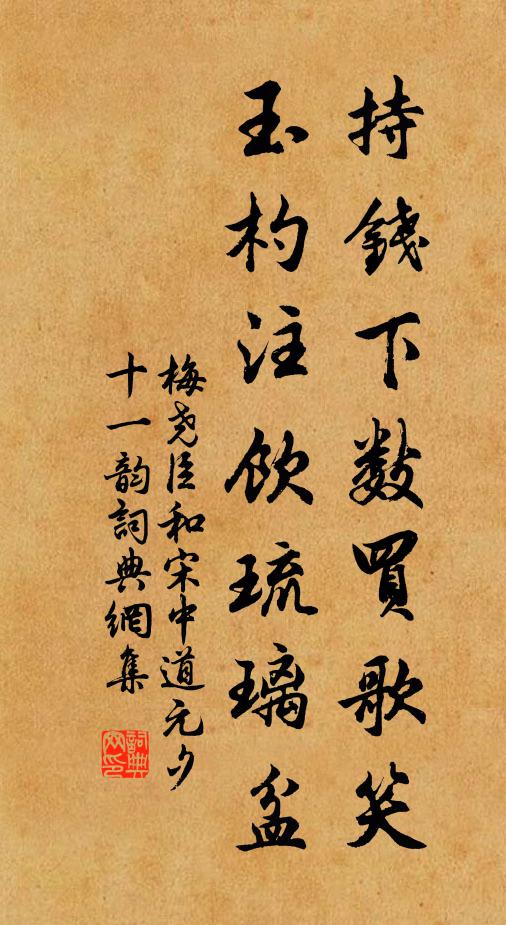 持錢下數買歌笑
玉杓注飲琉璃盆
梅堯臣和宋中道元夕
十一韵詞典網集
詞典
网印